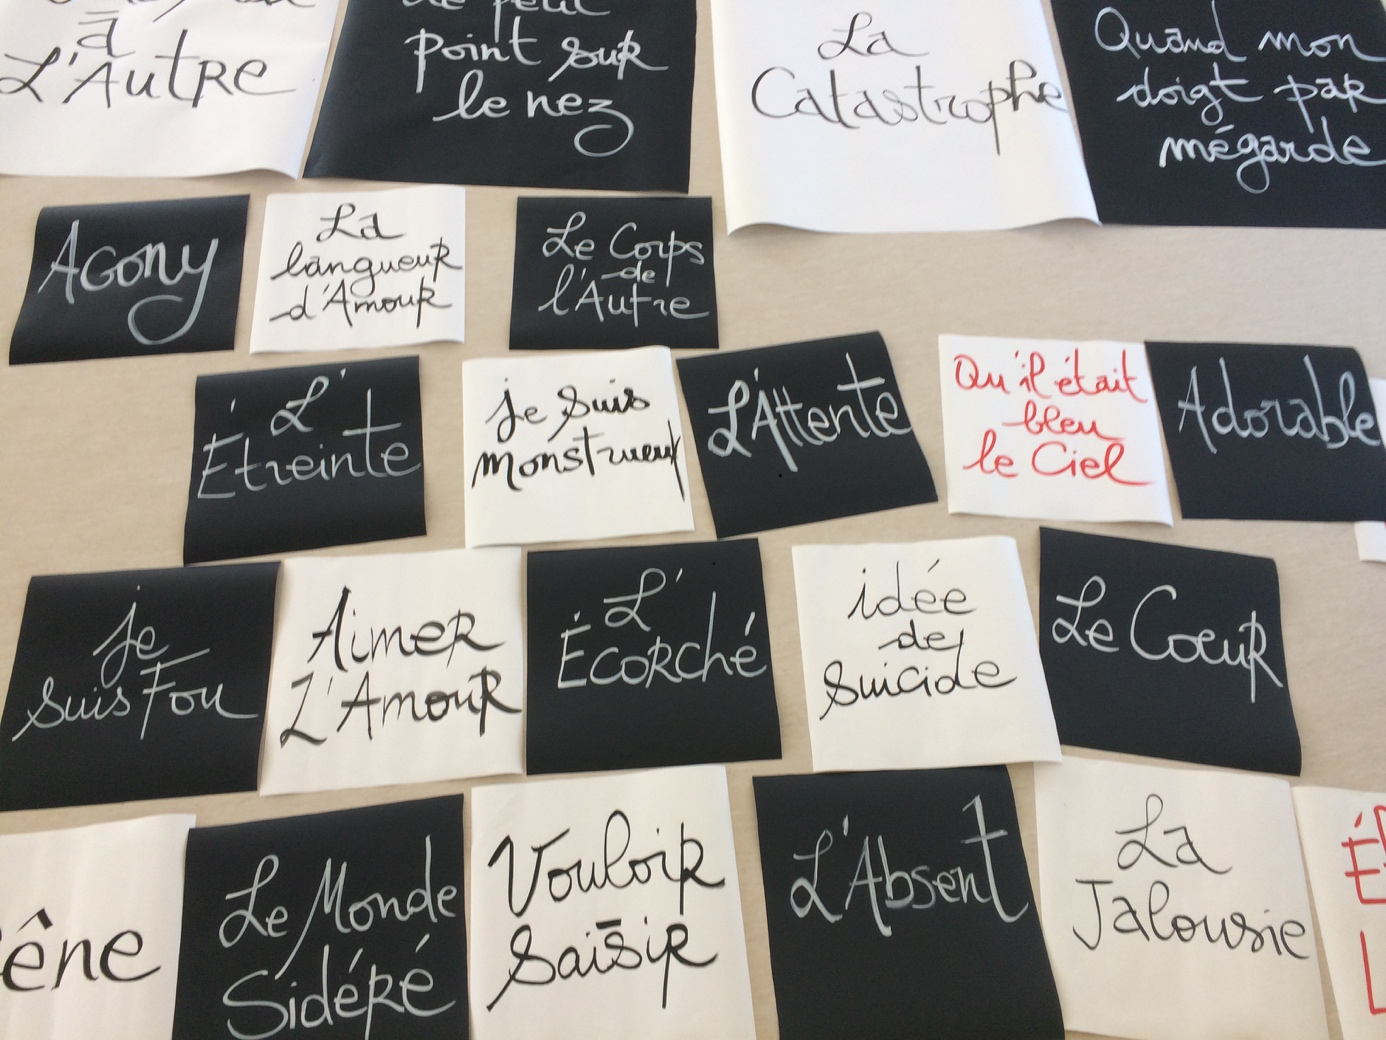 à
L'Autre
point sur
le nez
La
Catastrophe
Quand mon
doigt par
mégarde
Agony
La
langueur
d'Amour
Le Corps
de
l'Autre
L'
Étreinte
je suis
monstrueux
L'Attente
Qu'il était
bleu
le Ciel
Adorable
je
suis Fou
Aimer
L'Amour
L'
Écorché
idée
de
suicide
Le Coeur
Le Monde
Sidéré
Vouloir
saisir
L'Absent
La
Jalousie